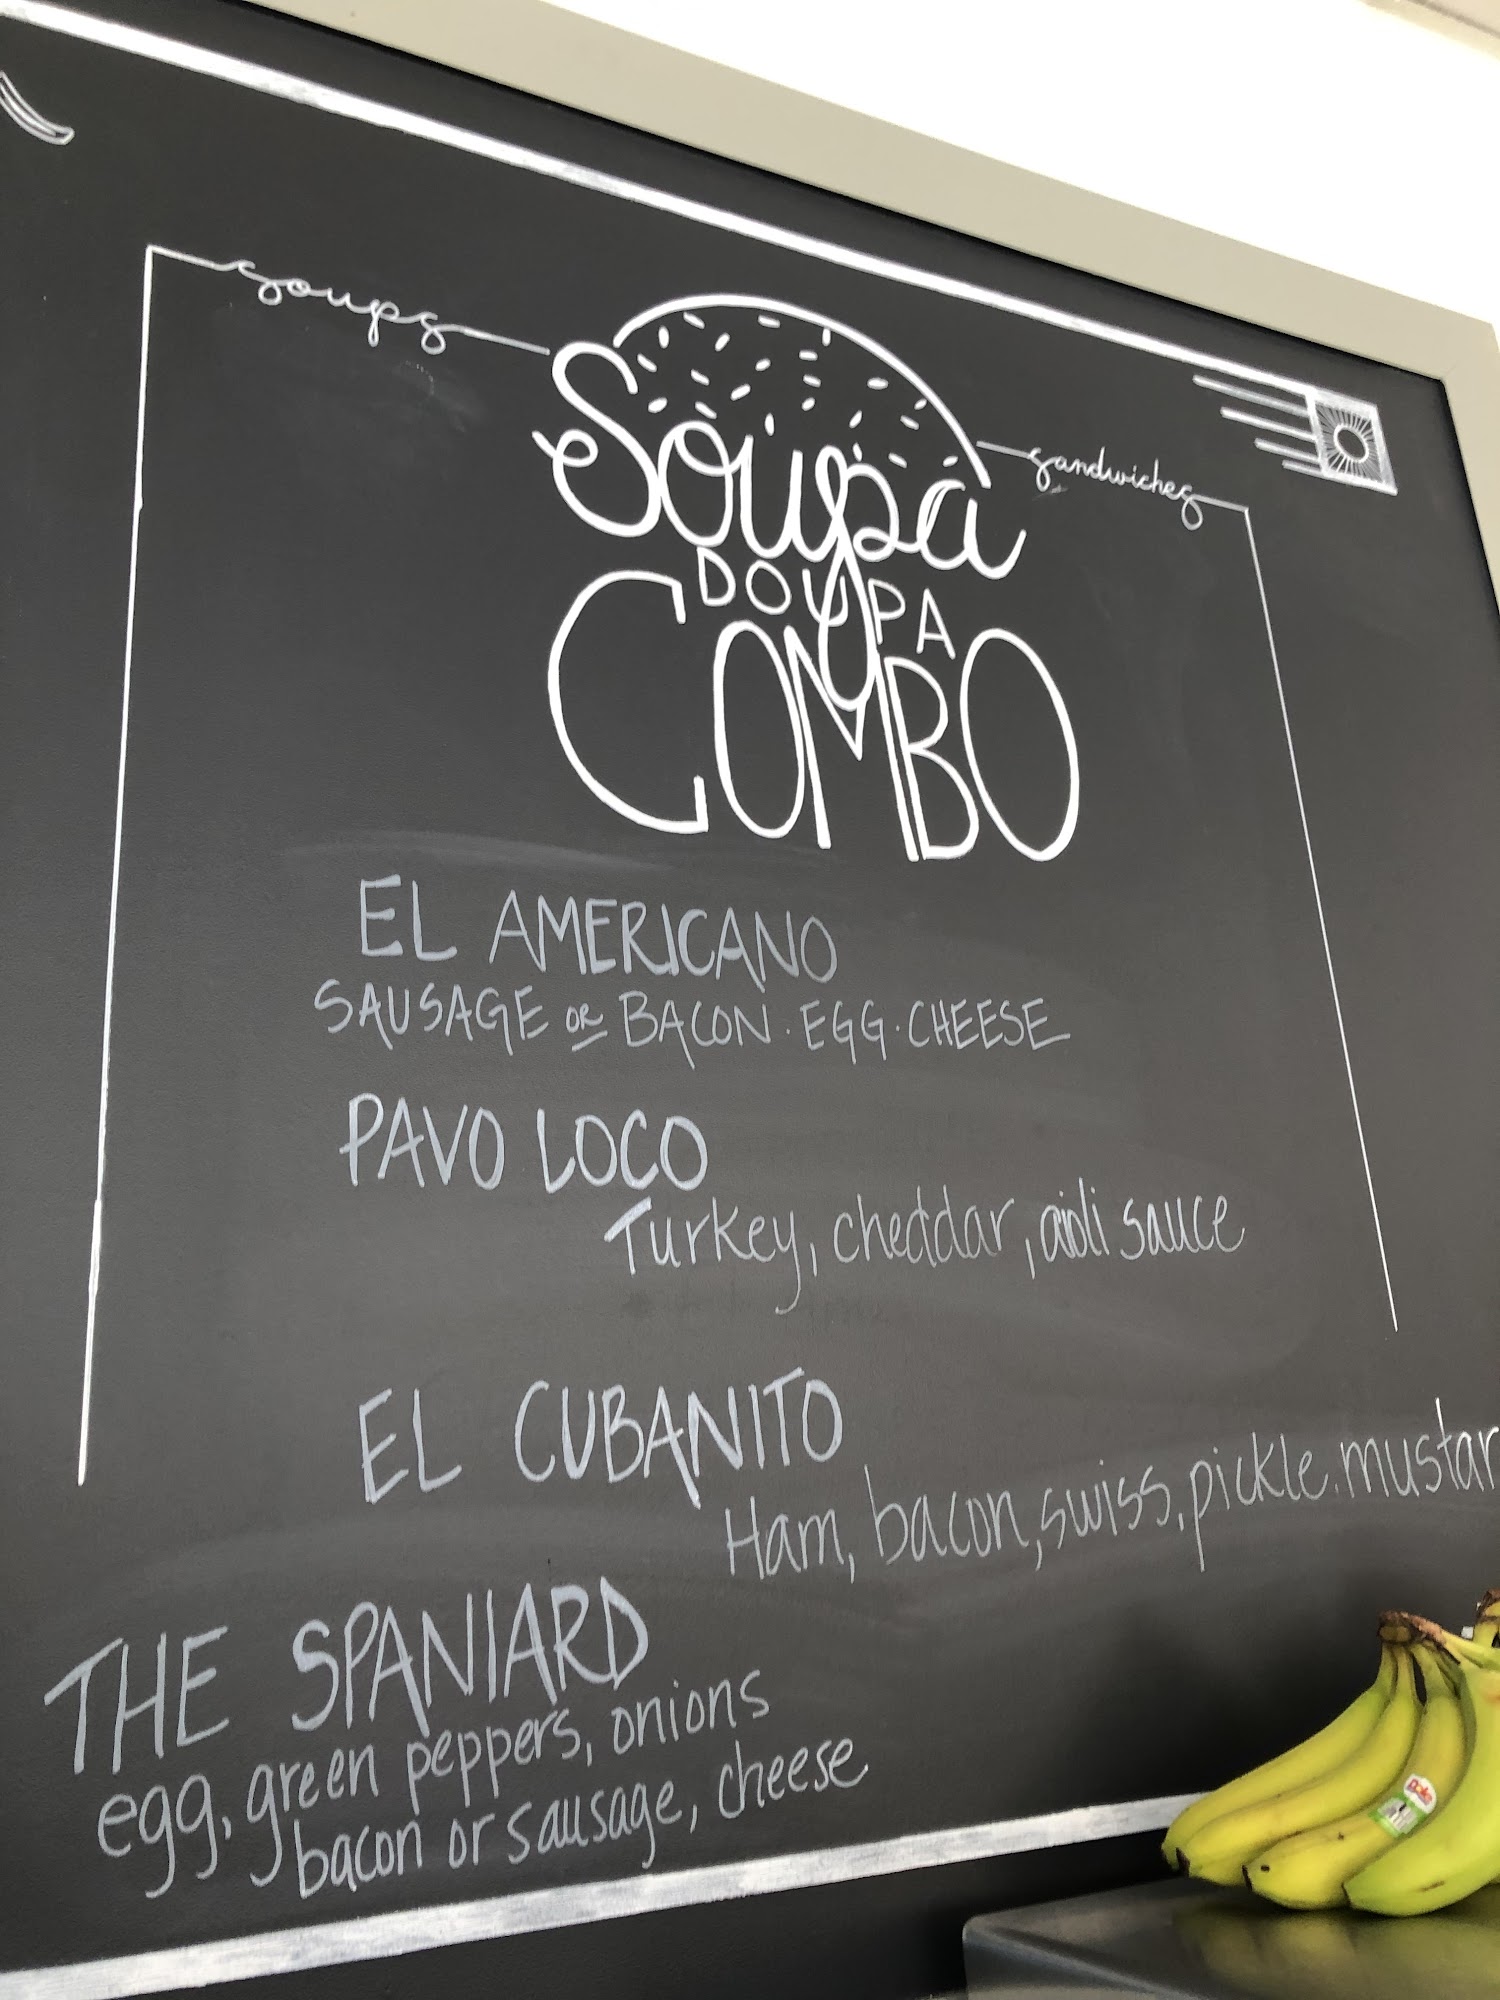 soups
sandwiches
Soupa
DOUPA
COMBO
EL AMERICANO
SAUSAGE OR BACON · EGG · CHEESE
PAVO LOCO
Turkey, cheddar, aioli sauce
EL CUBANITO
Ham, bacon, swiss, pickle. mustar
THE SPANIARD
egg, green peppers, onions
bacon or sausage, cheese
Dole